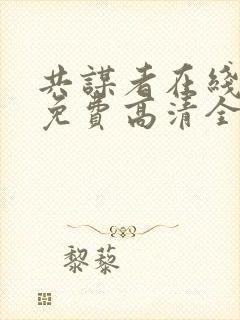 共謀者在綫
免費高清全
黎藜